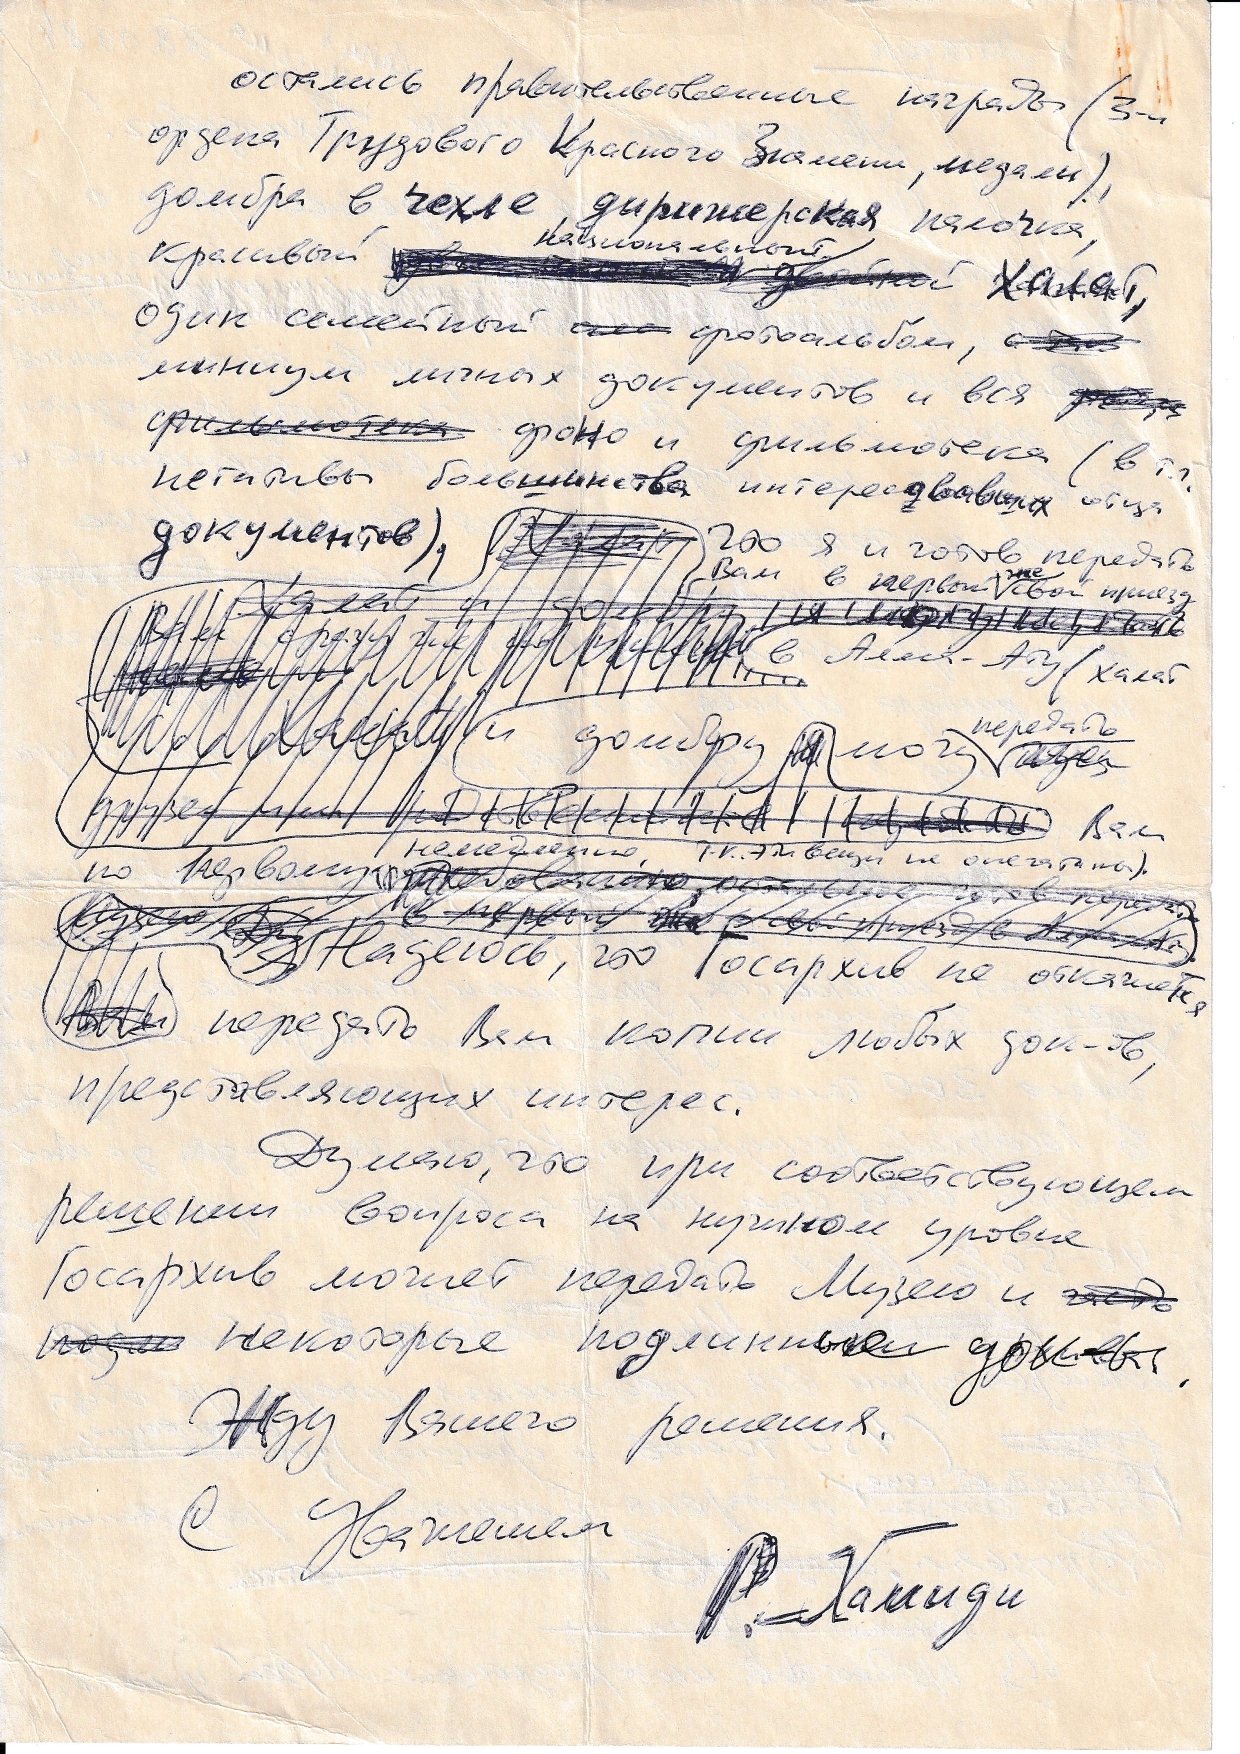 остались правительственные награды (3-и
ордена Трудового Красного Знамени, медали),
домбра в чехле, дирижерская палочка,
красивый национальный халат,
один семейный фотоальбом,
миниум личных документов и вся
фильмотека фоно и фильмотека (в т.ч.
негативы большинства интересовавших отца
документов), что я и готов передать
Вам в первый же свой приезд
в Алма-Ату (халат
и домбру я могу передать
Вам
по первому требованию немедленно, т.к. эти вещи не опечатаны).
Надеюсь, что Госархив не откажется
передать Вам копии любых док-ов,
представляющих интерес.
Думаю, что при соответствующем
решении вопроса на нужном уровне
Госархив может передать Музею и
некоторые подлинные док-ты.
Жду Вашего решения.
С Уважением
Р. Хамиди